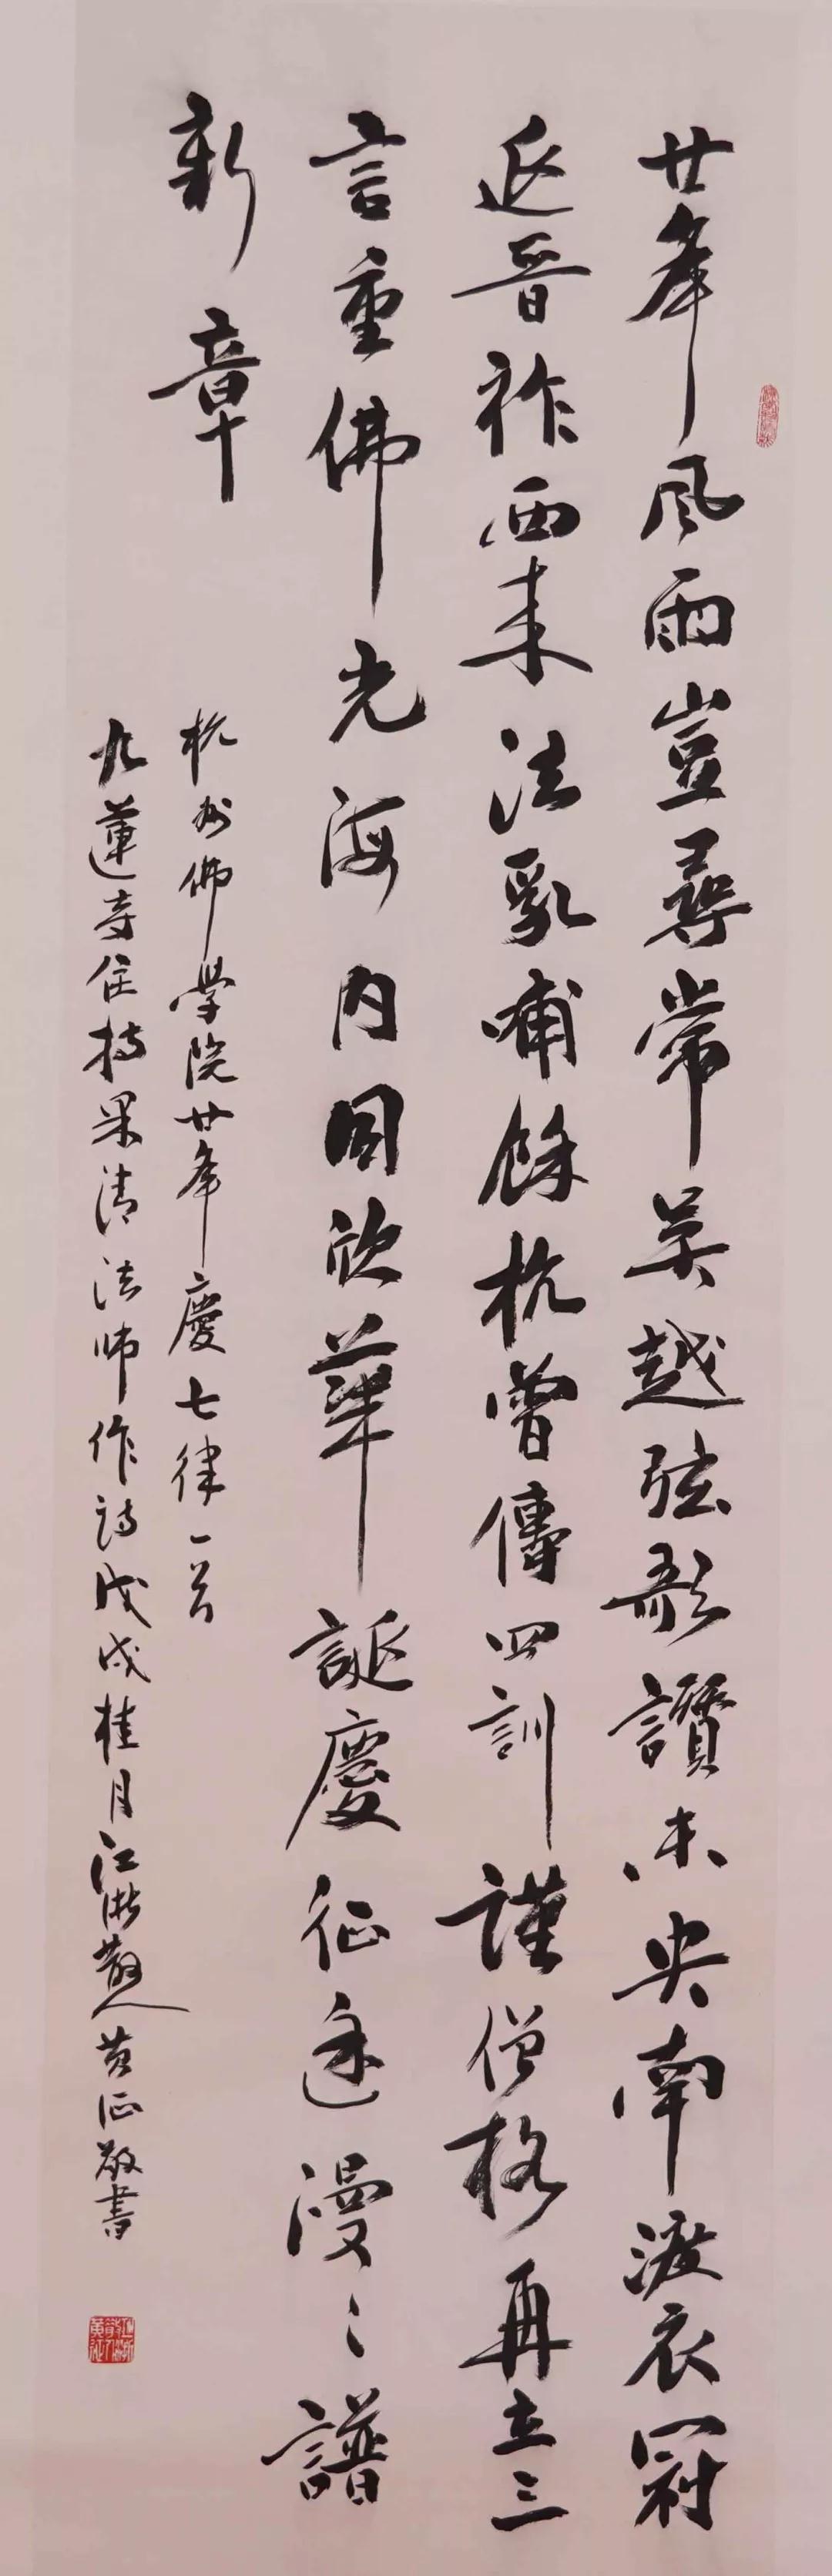 廿年風雨豈尋常吴越弦歌讚未央南渡衣冠
延晉祚西来法乳哺餘杭曾傳四訓謹僧格再立三
言重佛光海内同欣華誕慶征途漫〻譜
新章
杭州佛學院廿年慶七律一首
九蓮寺住持果清法师作詩戊戌桂月江浙散人黄征敬書